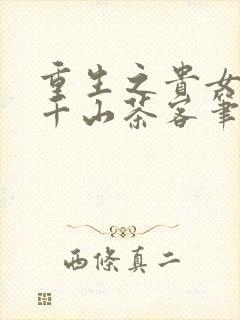 重生之貴女
千山茶客筆
西條真二